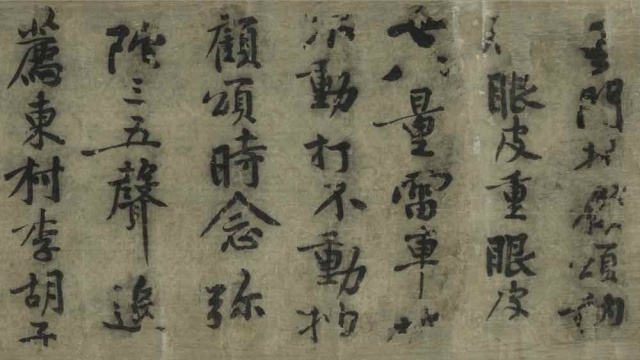 門頌
眼皮重眼皮
量雷車
動打不動
顧頌時念弥
陀三五聲追
薦東村李胡子